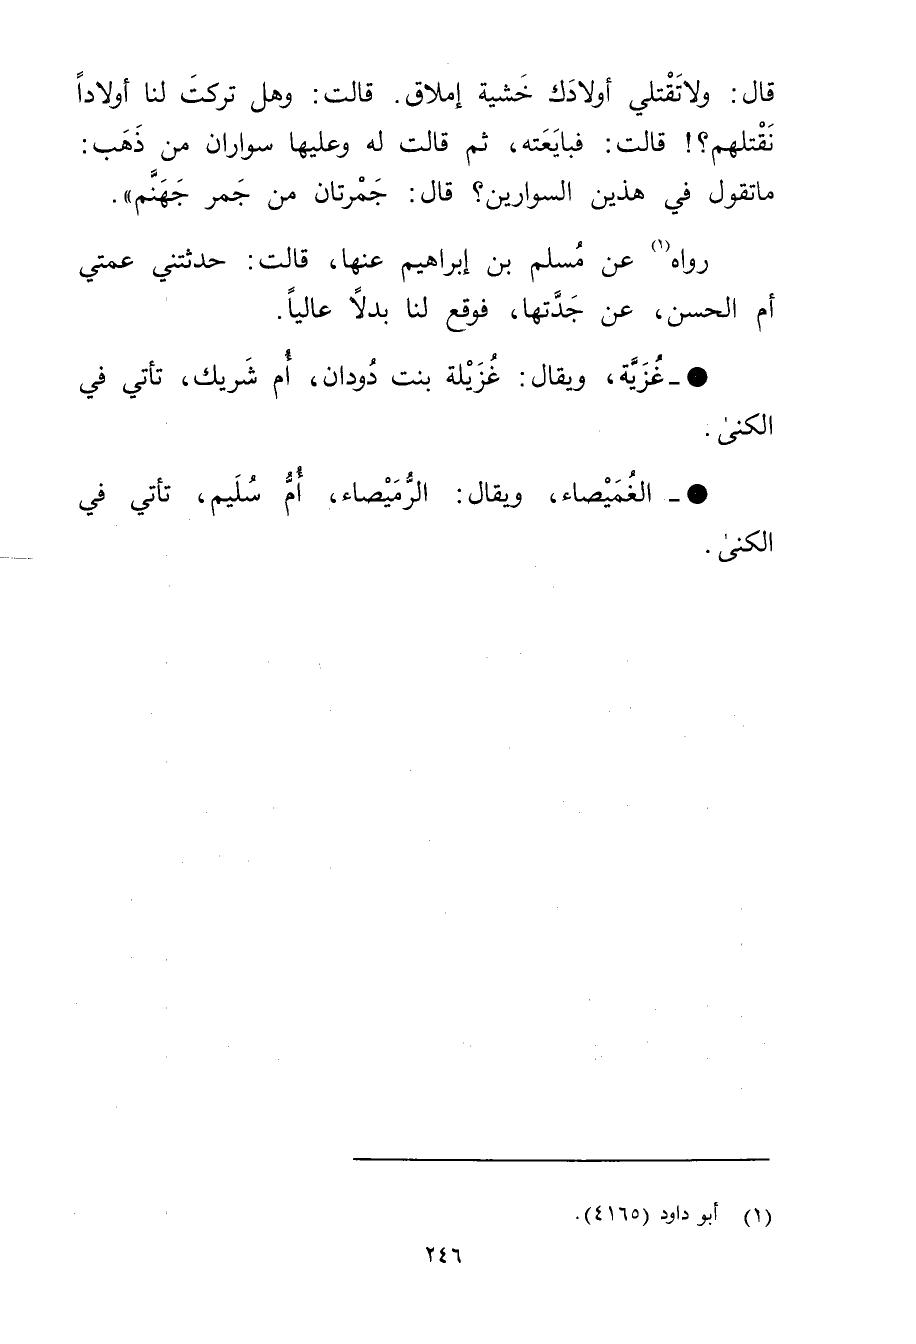 قال: ولاتَقْتلي أولادَك خَشية إملاق. قالت: وهل تركتَ لنا أولاداً
نَقْتلهم؟! قالت: فبايَعَته، ثم قالت له وعليها سواران من ذَهَب:
ماتقول في هذين السوارين؟ قال: جَمْرتان من جَمر جَهَنَّم».
رواه(١) عن مُسلم بن إبراهيم عنها، قالت: حدثتني عمتي
أم الحسن، عن جَدَّتها، فوقع لنا بدلاً عالياً.
● ـ غُزَيَّة، ويقال: غُزَيْلة بنت دُودان، أُم شَريك، تأتي في
الكنىٰ.
● ـ الغُمَيْصاء، ويقال: الرُّمَيْصاء، أُمُّ سُلَيم، تأتي في
الكنىٰ.
(١) أبو داود (٤١٦٥).
٢٤٦